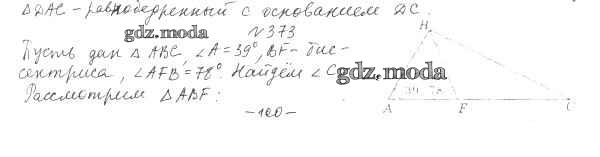 △DAC – равнобедренный с основанием DC.
gdz.moda
№373
Пусть дан △ABC, ∠A=39°, BF – бис-
сектриса, ∠AFB=78°. Найдём ∠C
gdz.moda
Рассмотрим △ABF:
–120–
A F C